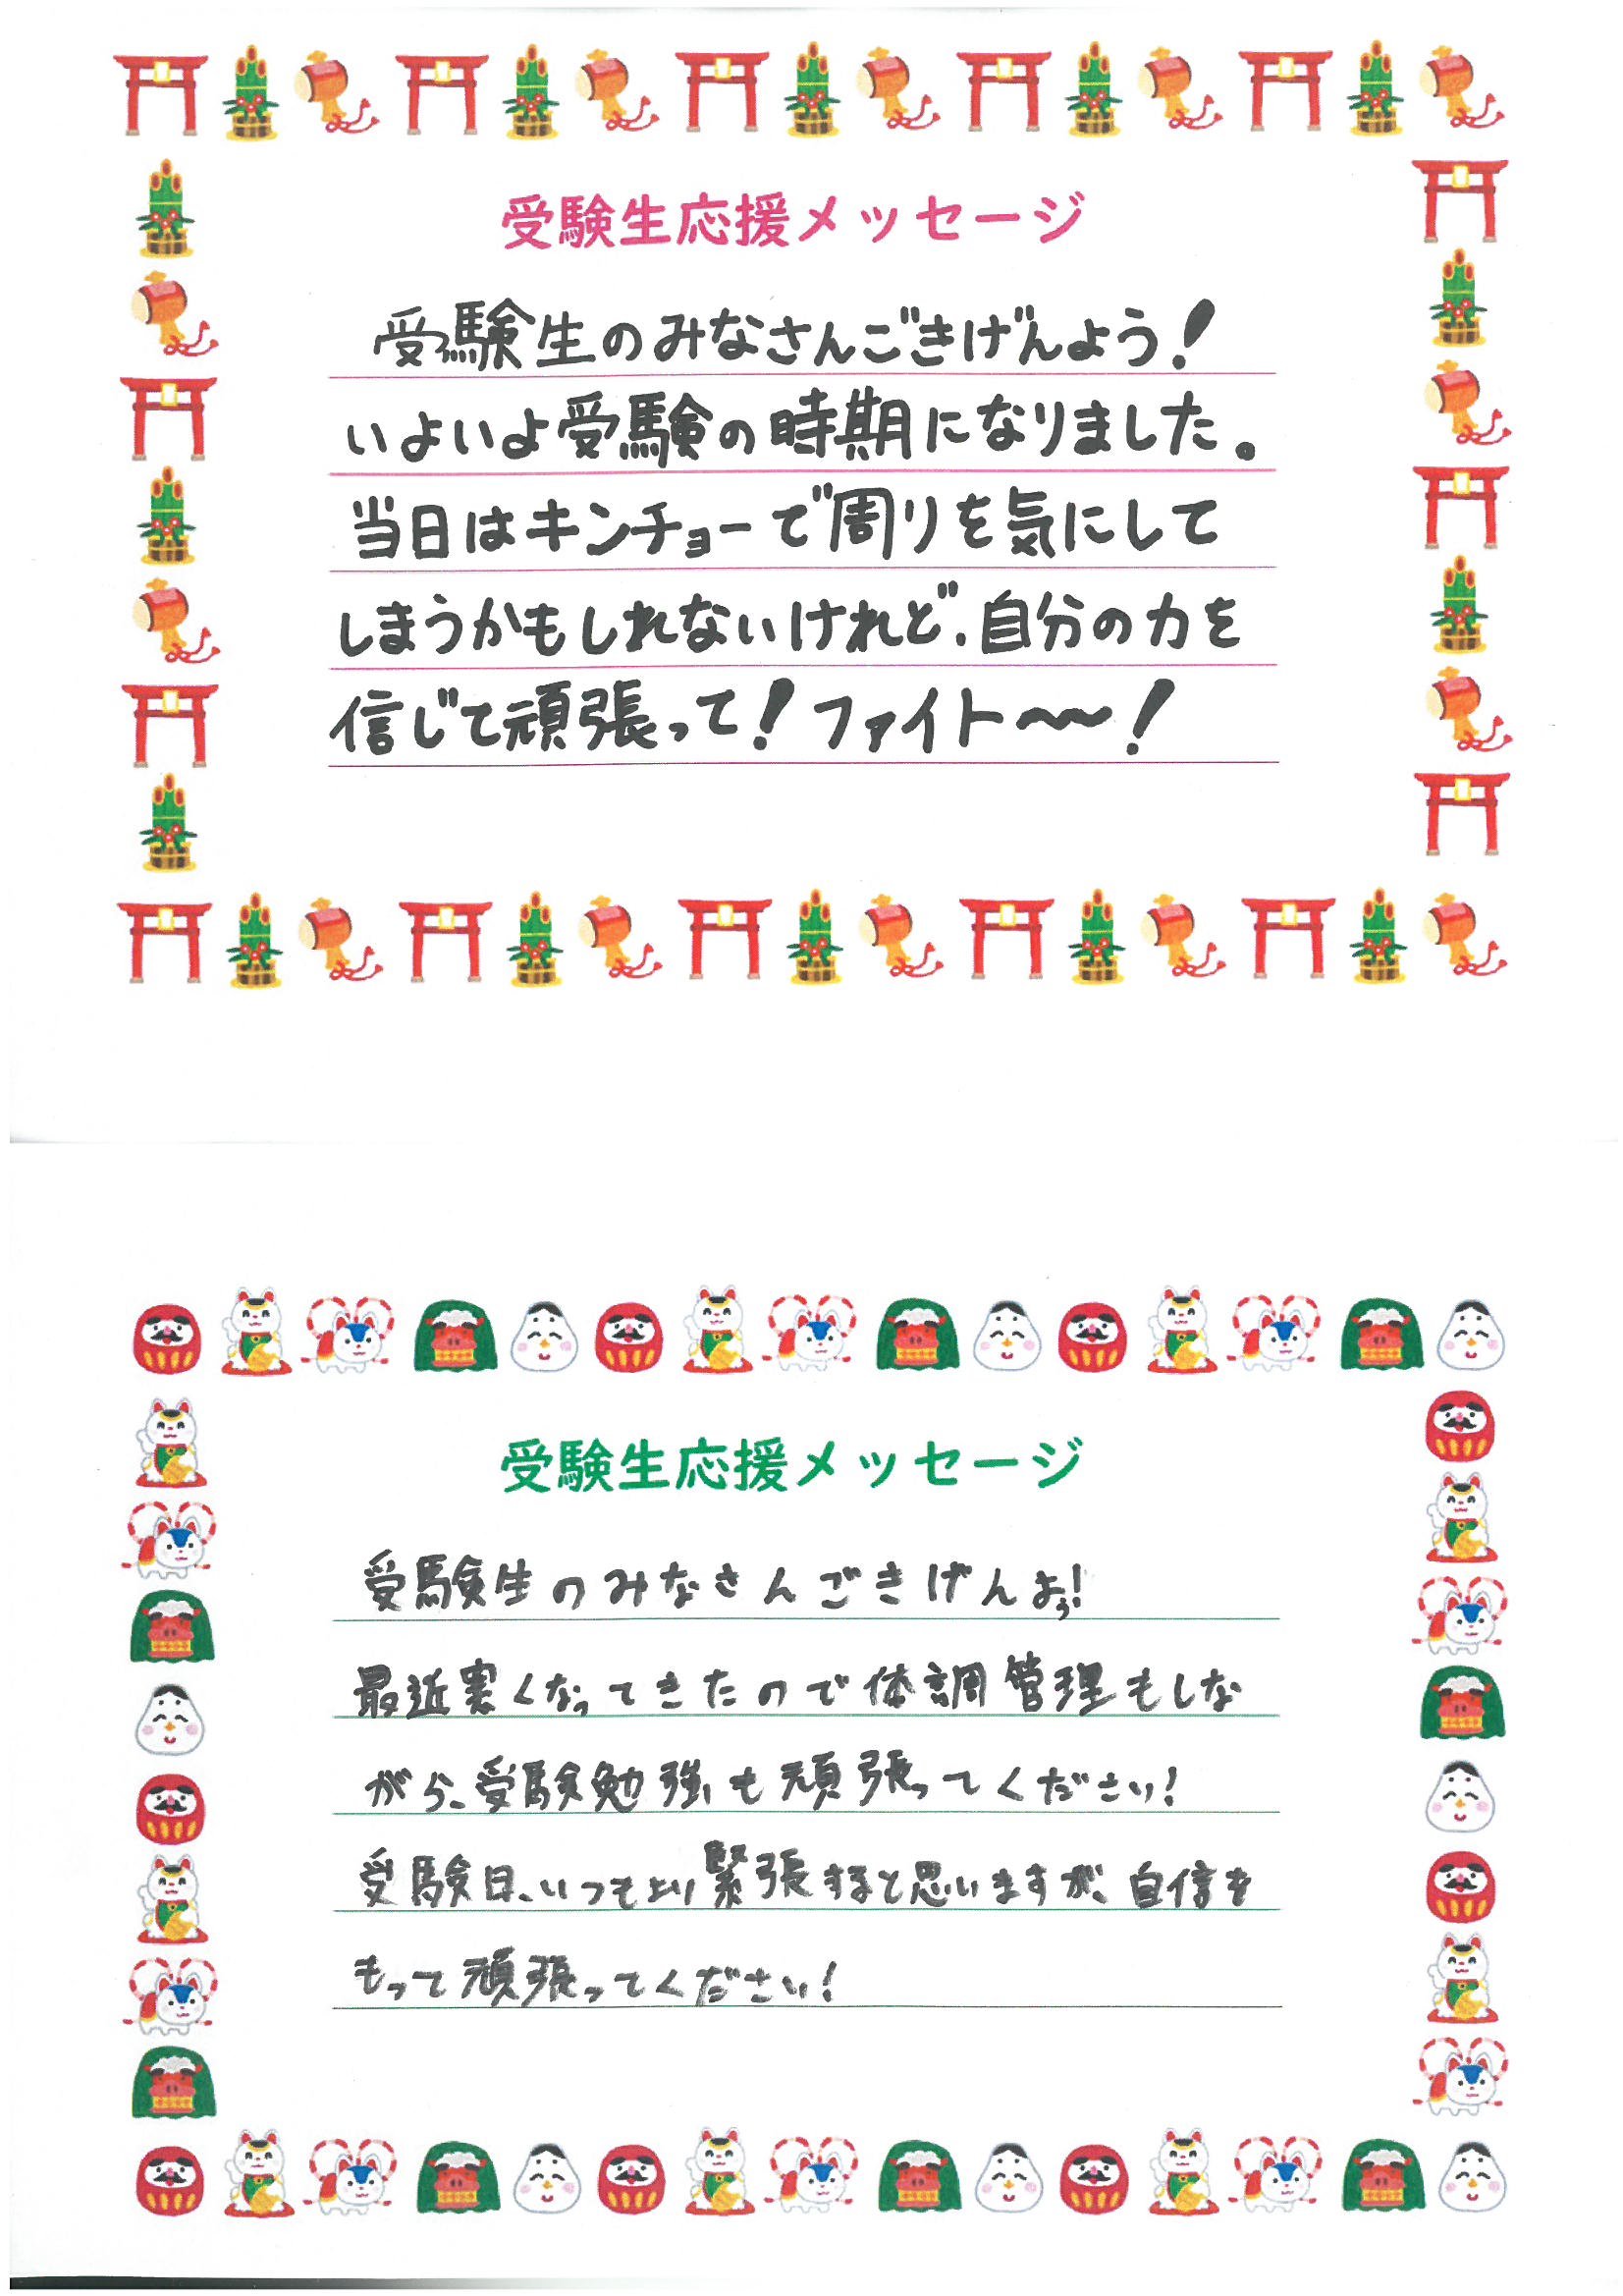 受験生応援メッセージ
受験生のみなさんごきげんよう!
いよいよ受験の時期になりました。
当日はキンチョーで周りを気にして
しまうかもしれないけれど、自分の力を
信じて頑張って!ファイト〜〜!
受験生応援メッセージ
受験生のみなさんごきげんよう!
最近寒くなってきたので体調管理もしな
がら、受験勉強も頑張ってください!
受験日、いつもより緊張すると思いますが、自信を
もって頑張ってください!